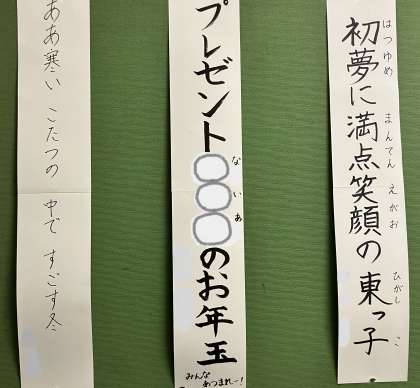 初夢に満点笑顔の東っ子
はつゆめ まんてん えがお ひがし こ
プレゼント
ないあ
のお年玉
みんな
あつまれー!
ああ寒い こたつの 中で すごす冬